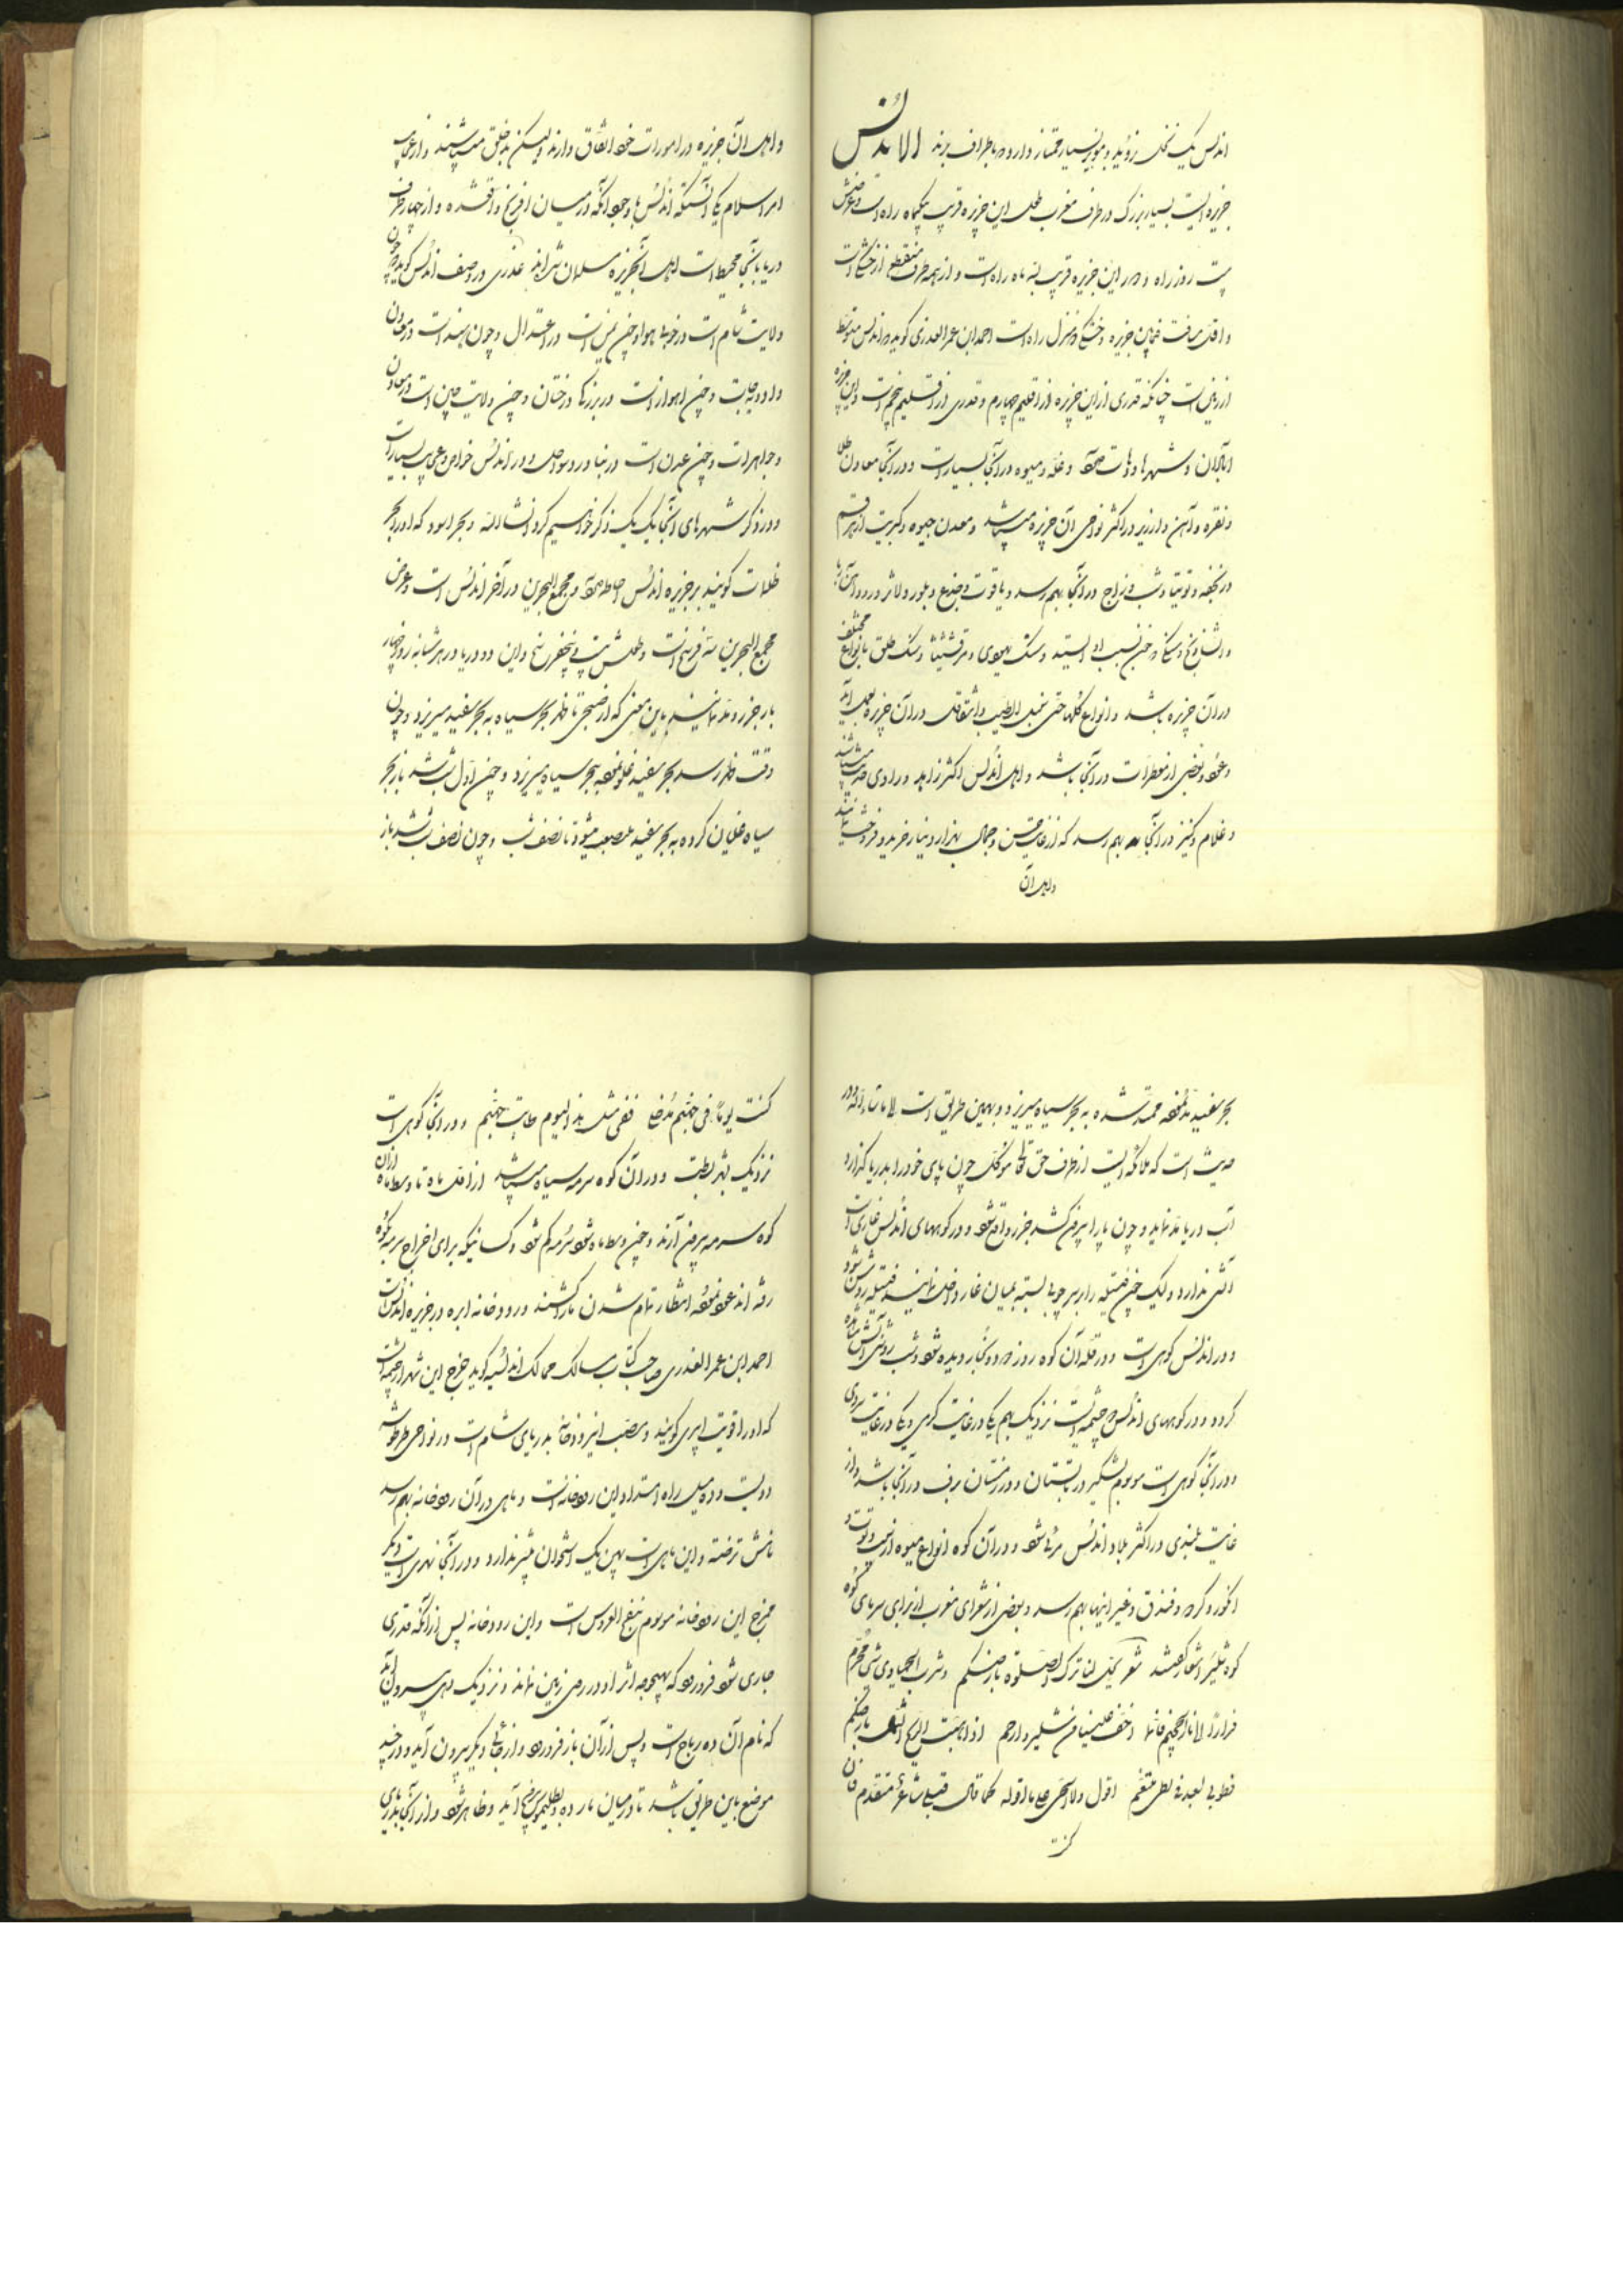 اندلس یک نخل نروید و مویز بسیار ممتاز دارد و باطراف برند الاندلس
جزیره ایست بسیار بزرگ در طرف مغرب طول این جزیره قریب یکماه راه است و عرضش
بیست روز راه و دور این جزیره قریب بسه ماه راه است و از همه طرف منقطع از خشکی است
و اقل مسافت میان جزیره و خشکی دو منزل راه است احمد ابن عمر العذری گوید که اندلس متوسط
از زمین است چنانکه قدری از این جزیره از اقلیم چهارم و قدری از اقلیم پنجم است و این جزیره
آبادان و شهرها و دهات و غله و میوه در آنجا بسیار است و در آنجا معادن طلا
و نقره و آهن و ارزیر در اکثر نواحی آن جزیره میباشد و معدن جیوه و کبریت از هر قسم
و زنجفر و توتیا و شب و زاج در آنجا بهم رسد و یاقوت و جزع و بلور و لاژورد و
و شادنج و سنگ یهودی و مرقشیثا و سنگ طلق بانواع مختلف
در آن جزیره باشد و انواع گلها حتی سنبل الطیب و اشقاقل در آن جزیره بعمل آید
و عود و بعضی از معطرات در آنجا باشد و اهل اندلس اکثر زاهد و راوی حدیث میباشند
و غلام و کنیز در آنجا بهم رسد که از غایت حسن و جمال بهزار دینار خرید و فروخت نمایند
و اهل آن
و اهل آن جزیره در امورات خود اتفاق دارند ولیکن بد خلق میباشند و از عجایب
امر اسلام یکی آنستکه اندلس با وجود آنکه در میان افرنج واقع شده و از چهار طرف
دریا بآنجا محیط است اهل آنجزیره مسلمان شده اند عذری در وصف اندلس گوید که چون
ولایت شام است در خوبی هوا و چون یمن است در اعتدال و چون هند است در معادن
و ادویه جات و چون اهواز است در بزرگی درختان و چون ولایت چین است در معادن
و جواهرات و چون عدن است در بنادر و سواحل و در اندلس خواص و عجایب بسیار است
و در ذکر شهرهای آنجا یک یک ذکر خواهیم کرد انشاالله و بحر اسود که او را بحر
ظلمات گویند بر جزیره اندلس احاطه و مجمع البحرین در آخر اندلس است و عرض
مجمع البحرین سه فرسخ است و طولش بیست و پنج فرسخ و این دو دریا در هر شبانه روز چهار
بار جزر و مد نمایند باین معنی که از صبح تا ظهر بحر سیاه به بحر سفید میریزد و چون
وقت ظهر رسد بحر سفید غلو نموده ببحر سیاه میریزد و چون اول شب شد باز بحر
سیاه غلیان کرده به بحر سفید منصب میشود تا نصف شب و چون نصف شب شد باز
بحر سفید مد نموده ممتد شده به بحر سیاه میریزد و بهمین طریق است الا ماشاءالله و در
حدیث است که ملائکه ایست از طرف حق تعالی موکل چون پای خود را بدریا گذارد
آب دریا مد نماید و چون پا را بیرون کشد جزر واقع شود و در کوههای اندلس غاری است
آتش ندارد و لیک چون فتیله را بر سر چوبی بسته بمیان غار داخل نمایند فتیله روشن شود
و در اندلس کوهی است و در قله آن کوه روز دود و بخار دیده شود و شب روشنی آتش مشاهده
گردد و در کوههای اندلس دو چشمه است نزدیک بهم یکی در غایت گرمی و یکی در غایت سردی
و در آنجا کوهی است موسوم بشلیر در تابستان و در زمستان برف در آنجا باشد و از
غایت بلندی در اکثر بلاد اندلس مرئی شود و در آن کوه انواع میوه از سیب و توت و
انگور و گردو و فندق و غیر اینها بهم رسد و بعضی از شعرای مغرب از برای سرمای کوه
کوه شلیر اشعار گفته اند شعر یحل لنا ترک الصلوة بارضکم و شرب الحمیا و هی شیئ محرم
فرارا الی نار الجحیم فانها اخف علینا من شلیر و ارحم اذا هبت الریح الشمال بارضکم
فطوبی لعبد فی لظی یتنعم اقول و لا انحی علی ما اقوله کما قال قبلی شاعر متقدم فان
کنت
کنت یوما فی جهنم مدخلی ففی مثل هذا الیوم طابت جهنم و در آنجا کوهی است
نزدیک بشهر بسطه و در آن کوه سرمه سیاه میباشد از اول ماه تا وسط ماه از آن
کوه سرمه بیرون آرند و چون وسط ماه شود سرمه کم شود و کسانیکه برای اخراج سرمه بکوه
رفته اند عود نموده انتظار تمام شدن ماه را کشند و رودخانه ابره در جزیره اندلس است
احمد ابن عمر العذری صاحب کتاب مسالک ممالک اندلسیه گوید مخرج این نهر از چشمه ایست
که او را فونت ایبری گویند و مصب این رودخانه بدریای شام است در نواحی طرطوشه
دویست و ده میل راه امتداد این رودخانه است و ماهی در آن رودخانه بهم رسد
نامش ترخته و این ماهی است پهن یک استخوان بیشتر ندارد و در آنجا نهری است دیگر
مخرج این رودخانه موسوم بفج العروس است و این رودخانه پس از آنکه قدری
جاری شود فرو رود که بهیچوجه اثر او در روی زمین نماند و نزدیک دهی بیرون آید
که نام آن ده رباح است و پس از آن باز فرو رود و از جای دیگر بیرون آید و در چند
موضع باین طریق باشد تا در میان مارده و بطلیموس بیرون آید و ظاهر شود و از آنجا بدریای